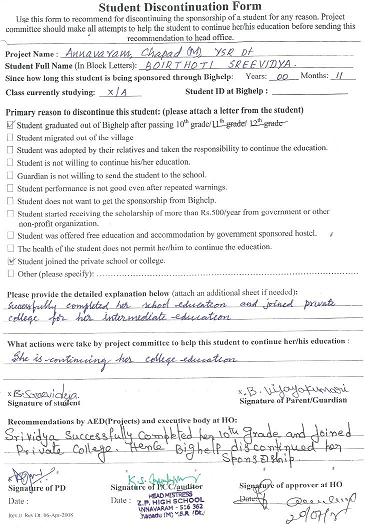 Student Discontinuation Form
Use this form to recommend for discontinuing the sponsorship of a student for any reason. Project
committee should make all attempts to help the student to continue his/her education before sending this
recommendation to head office.
Project Name : Annavaram, Chapad (M) YSR Dt
Student Full Name (In Block Letters): BOIRTHOTI SREEVIDYA.
Since how long this student is being sponsored through Bighelp: Years: 00 Months: 11
Class currently studying: X/A Student ID at Bighelp :
Primary reason to discontinue this student: (please attach a letter from the student)
Student graduated out of Bighelp after passing 10th grade/11th grade/ 12th grade
Student migrated out of the village
Student was adopted by their relatives and taken the responsibility to continue the education.
Student is not willing to continue his/her education.
Guardian is not willing to send the student to the school.
Student performance is not good even after repeated warnings.
Student does not want to get the sponsorship from Bighelp.
Student started receiving the scholarship of more than Rs.500/year from government or other
non-profit organization.
Student was offered free education and accommodation by government sponsored hostel.
The health of the student does not permit her/him to continue the education.
Student joined the private school or college.
Other (please specify):
Please provide the detailed explanation below (attach an additional sheet if needed):
Sucessfully completed her school education and joined private
college for her intermediate education
What actions were take by project committee to help this student to continue her/his education :
She is continuing her college education
x B. Sreevidya x B. Vijayakumari
Signature of student Signature of Parent/Guardian
Recommendations by AED(Projects) and executive body at HO:
Srividya Successfully Completed her 10th grade and joined
Private College. Hence Bighelp discontinued her
Sponsership.
Signature of PD Signature of PCC/auditor Signature of approver at HO
Date : Date : Date :
HEADMISTRESS
Z.P. HIGH SCHOOL
ANNAVARAM - 516 362
Chapadu (M) Y.S.R (Dt.)
Rev.0 Rev Dt. 06-Apr-2008